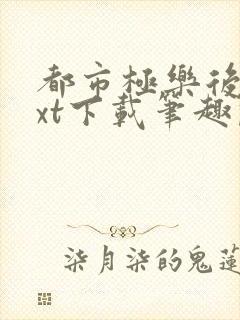 都市極樂後
xt下載筆趣
柒月柒的鬼蓮